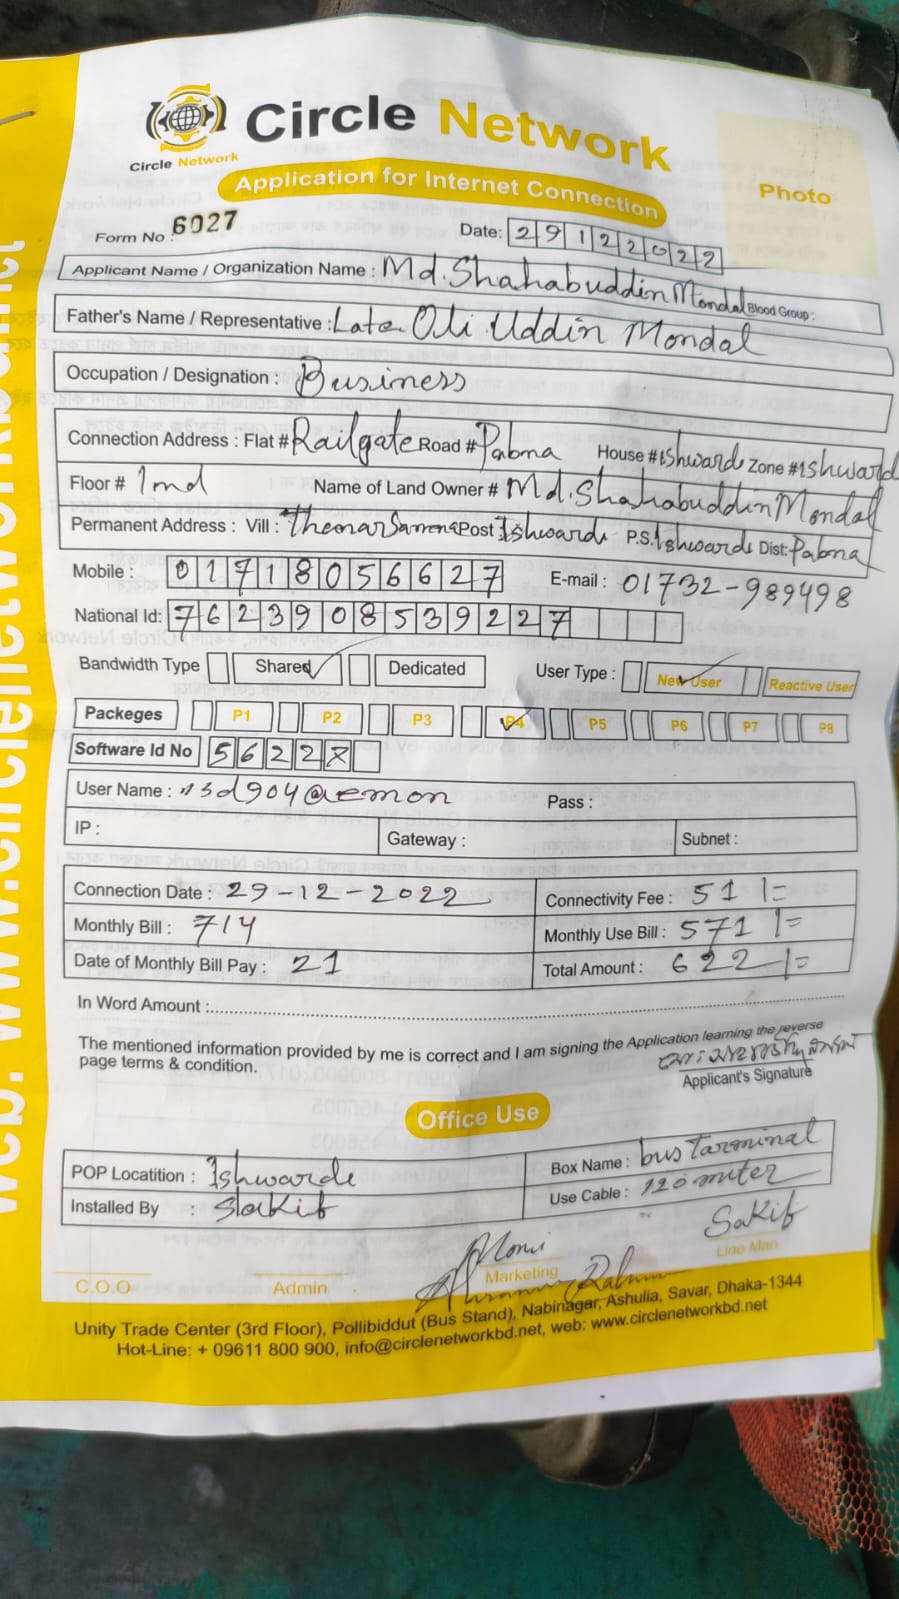 Circle Network
Circle Network
Application for Internet Connection
Photo
Form No : 6027
Date: 29122022
Applicant Name / Organization Name : Md. Shahabuddin Mondal Blood Group :
Father's Name / Representative : Late. Oli Uddin Mondal
Occupation / Designation : Business
Connection Address : Flat # Railgate Road # Pabna House # Ishwardi Zone # Ishward
Floor # 1nd Name of Land Owner # Md. Shahabuddin Mondal
Permanent Address : Vill : Post : Ishwardi P.S. Ishwardi Dist: Pabna
Mobile : 01718056627 E-mail : 01732-989498
National Id: 7623908539227
Bandwidth Type Shared Dedicated User Type : New User Reactive User
Packeges P1 P2 P3 P4 P5 P6 P7 P8
Software Id No 5622
User Name : @emon Pass :
IP : Gateway : Subnet :
Connection Date : 29-12-2022 Connectivity Fee : 51/=
Monthly Bill : 714 Monthly Use Bill : 571/=
Date of Monthly Bill Pay : 21 Total Amount : 622/=
In Word Amount :
The mentioned information provided by me is correct and I am signing the Application learning the reverse
page terms & condition.
Applicant's Signature
Office Use
POP Locatition : Ishwarde Box Name : bus Tarminal
Installed By : Sakif Use Cable : 120 miter
Sakif
C.O.O Admin Marketing Line Man
Unity Trade Center (3rd Floor), Pollibiddut (Bus Stand), Nabinagar, Ashulia, Savar, Dhaka-1344
Hot-Line: + 09611 800 900, info@circlenetworkbd.net, web: www.circlenetworkbd.net
web: www.circlenetworkbd.net